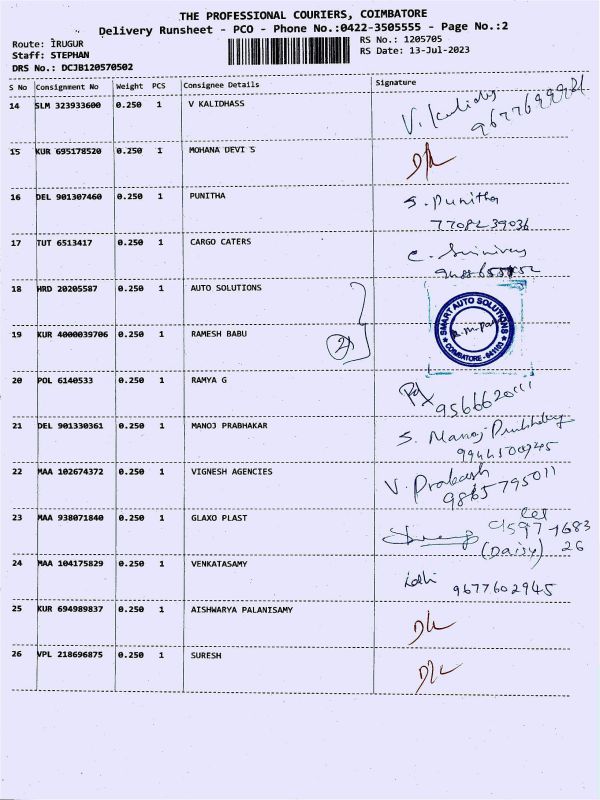 THE PROFESSIONAL COURIERS, COIMBATORE
Delivery Runsheet - PCO - Phone No.:0422-3505555 - Page No.:2
Route: IRUGUR RS No.: 1205705
Staff: STEPHAN RS Date: 13-Jul-2023
DRS No.: DCJB120570502
S No Consignment No Weight PCS Consignee Details Signature
14 SLM 323933600 0.250 1 V KALIDHASS V. Kalidas
15 KUR 695178520 0.250 1 MOHANA DEVI S
16 DEL 901307460 0.250 1 PUNITHA S. Punitha
7708239036
17 TUT 6513417 0.250 1 CARGO CATERS
18 HRD 20205587 0.250 1 AUTO SOLUTIONS
SMART AUTO SOLUTIONS
COIMBATORE - 641103
19 KUR 4000039706 0.250 1 RAMESH BABU 2
20 POL 6140533 0.250 1 RAMYA G
9566620111
21 DEL 901330361 0.250 1 MANOJ PRABHAKAR S. Manoj Prabhakar
9944500945
22 MAA 102674372 0.250 1 VIGNESH AGENCIES V. Prakash
9865795011
23 MAA 938071840 0.250 1 GLAXO PLAST Cel
91597-1683
(Daisy) 26
24 MAA 104175829 0.250 1 VENKATASAMY
9677602945
25 KUR 694989837 0.250 1 AISHWARYA PALANISAMY
26 VPL 218696875 0.250 1 SURESH